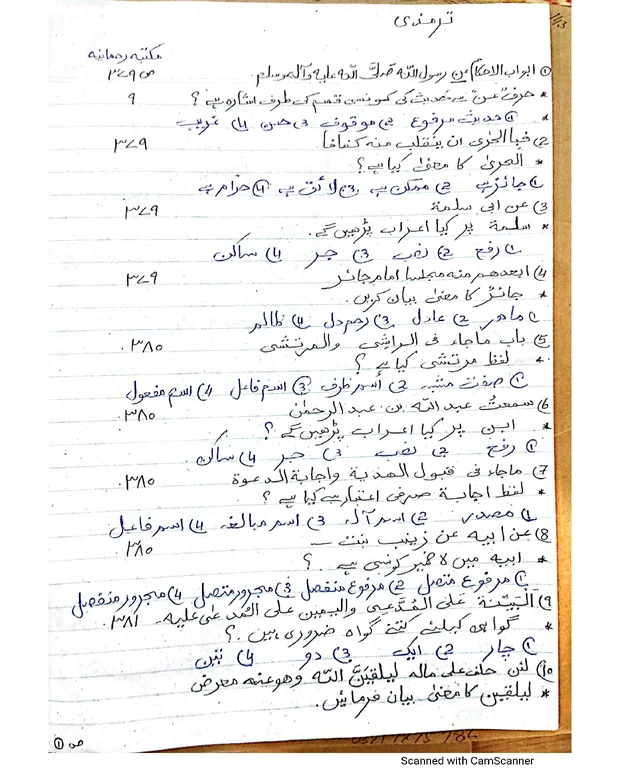 ترمذی
مکتبہ رحمانیہ
① ابواب الاحکام عن رسول اللہ صلی اللہ علیہ وآلہ وسلم. ص ۳۷۹
* حرف عن سے حدیث کی کونسی قسم کی طرف اشارہ ہے؟ ۹
① حدیث مرفوع 2) موقوف 3) حسن 4) غریب
2) فبالحری ان ینقلب منه کفافا ۳۷۹
* الحری کا معنی کیا ہے؟
① جائز ہے 2) ممکن ہے 3) لائق ہے 4) حرام ہے
3) عن ابی سلمة ۳۷۹
* سلمة پر کیا اعراب پڑھیں گے.
1) رفع 2) نصب 3) جر 4) ساکن
4) ابعدهم منه مجلسا امام جائر ۳۷۹
* جائر کا معنی بیان کریں.
1) ماہر 2) عادل 3) رحم دل 4) ظالم
5) باب ماجاء فی الراشی والمرتشی ۳۸۰.
* لفظ مرتشی کیا ہے؟
① صفت مشبہ 2) اسم ظرف 3) اسم فاعل 4) اسم مفعول
6) سمعت عبد اللہ بن عبد الرحمٰن ۳۸۰.
* ابن پر کیا اعراب پڑھیں گے؟
① رفع 2) نصب 3) جر 4) ساکن
7) ماجاء فی قبول الهدية واجابة الدعوة ۳۸۰.
* لفظ اجابة صرفی اعتبار سے کیا ہے؟
1) مصدر 2) اسم آلہ 3) اسم مبالغہ 4) اسم فاعل
8) عن ابیه عن زینب بنت — ۳۸۰
* ابیه میں ہ ضمیر کونسی ہے.؟
① مرفوع متصل 2) مرفوع منفصل 3) مجرور متصل 4) مجرور منفصل
9) البَیِّنة علی المُدَّعِی والیمین علی المُدَّعٰی علیه. ۳۸۱.
* گواہی کیلئے کتنے گواہ ضروری ہیں.؟
① چار 2) ایک 3) دو 4) تین
10) لئن حلف علی ماله لیلقیَنَّ اللہ وهو عنه معرض
* لیلقین کا معنی بیان فرمائیں.
ص ①
Scanned with CamScanner